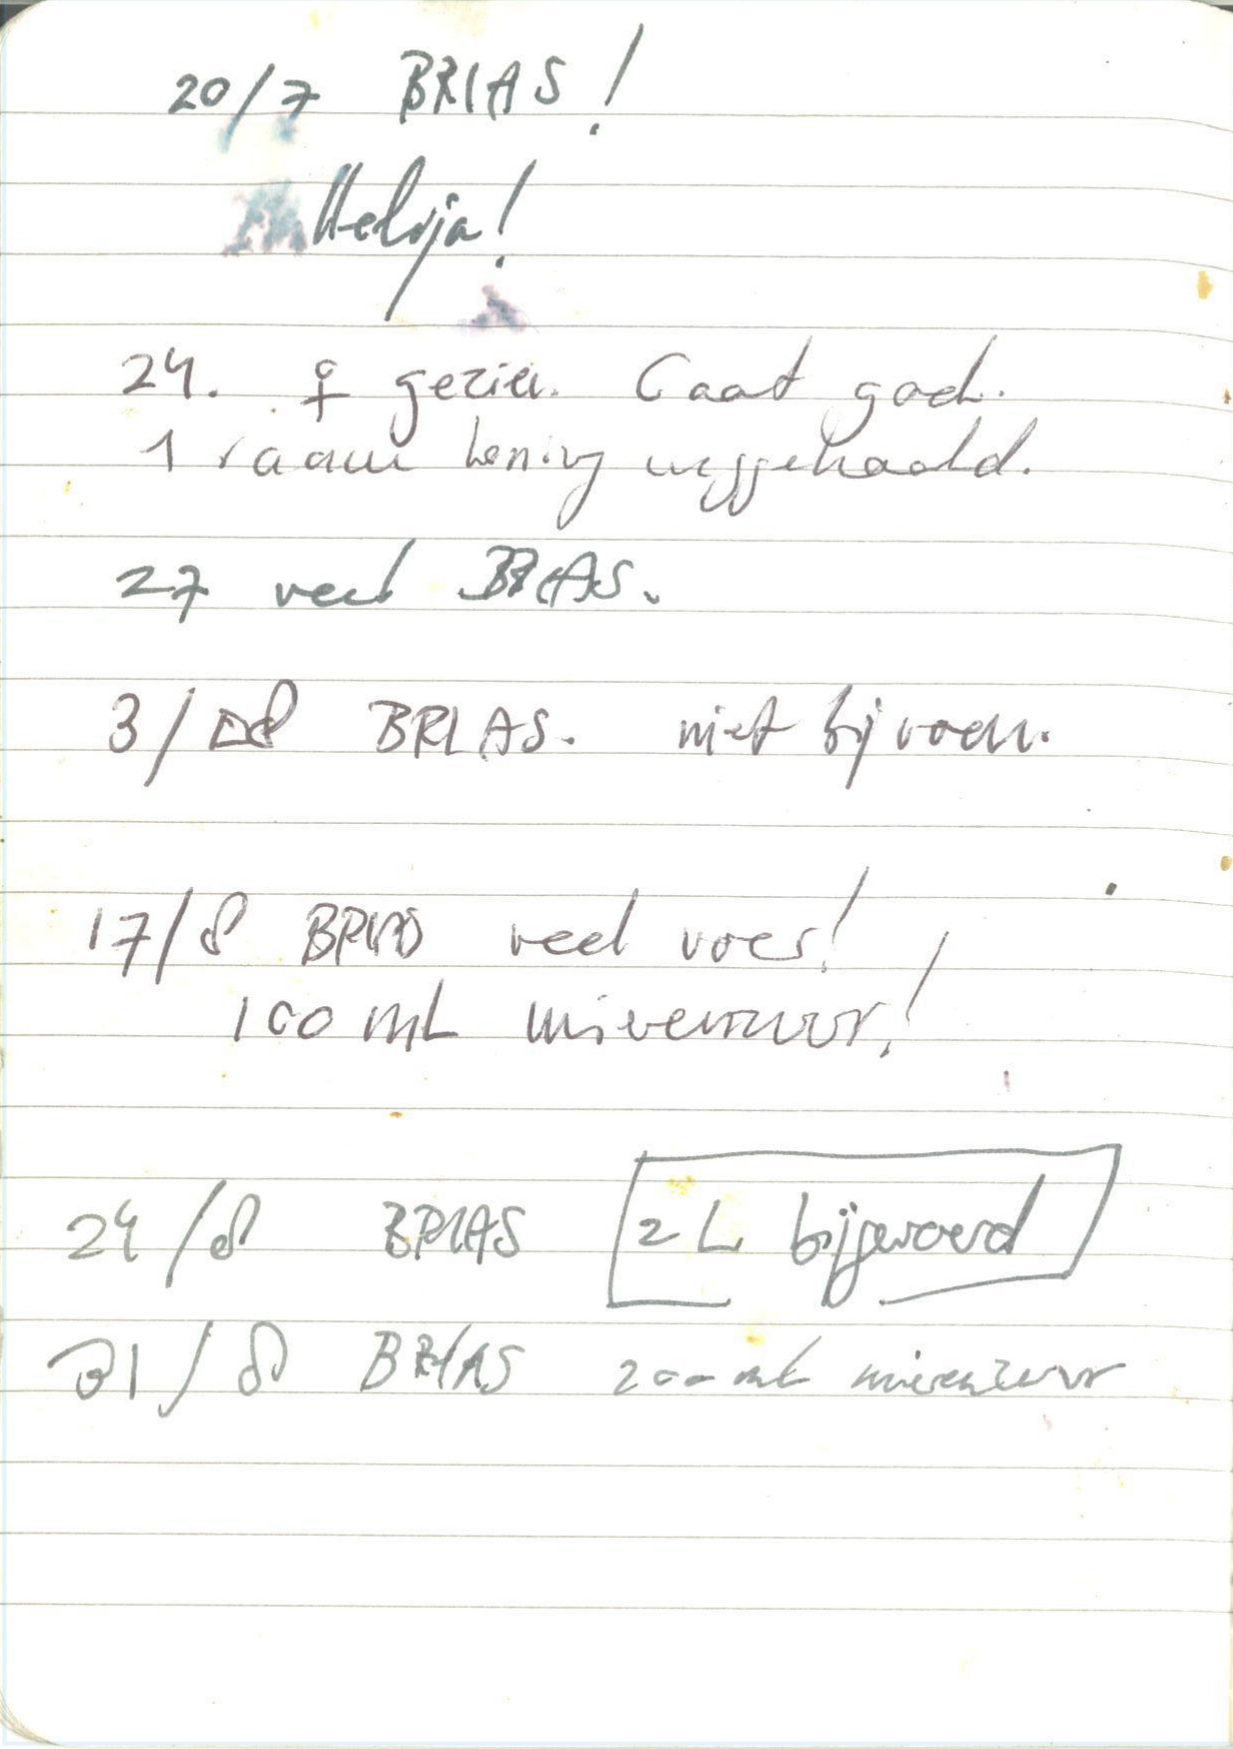 20/7 BRIAS!
Alleluja!
24. ♀ gezien. Gaat goed.
1 raam honing weggehaald.
27 veel BRIAS.
3/8 BRIAS. niet bijvoeren.
17/8 BRIAS veel voer!
100 mL mierenzuur!
24/8 BRIAS 2 L bijgevoerd
31/8 BRIAS 200 mL mierenzuur